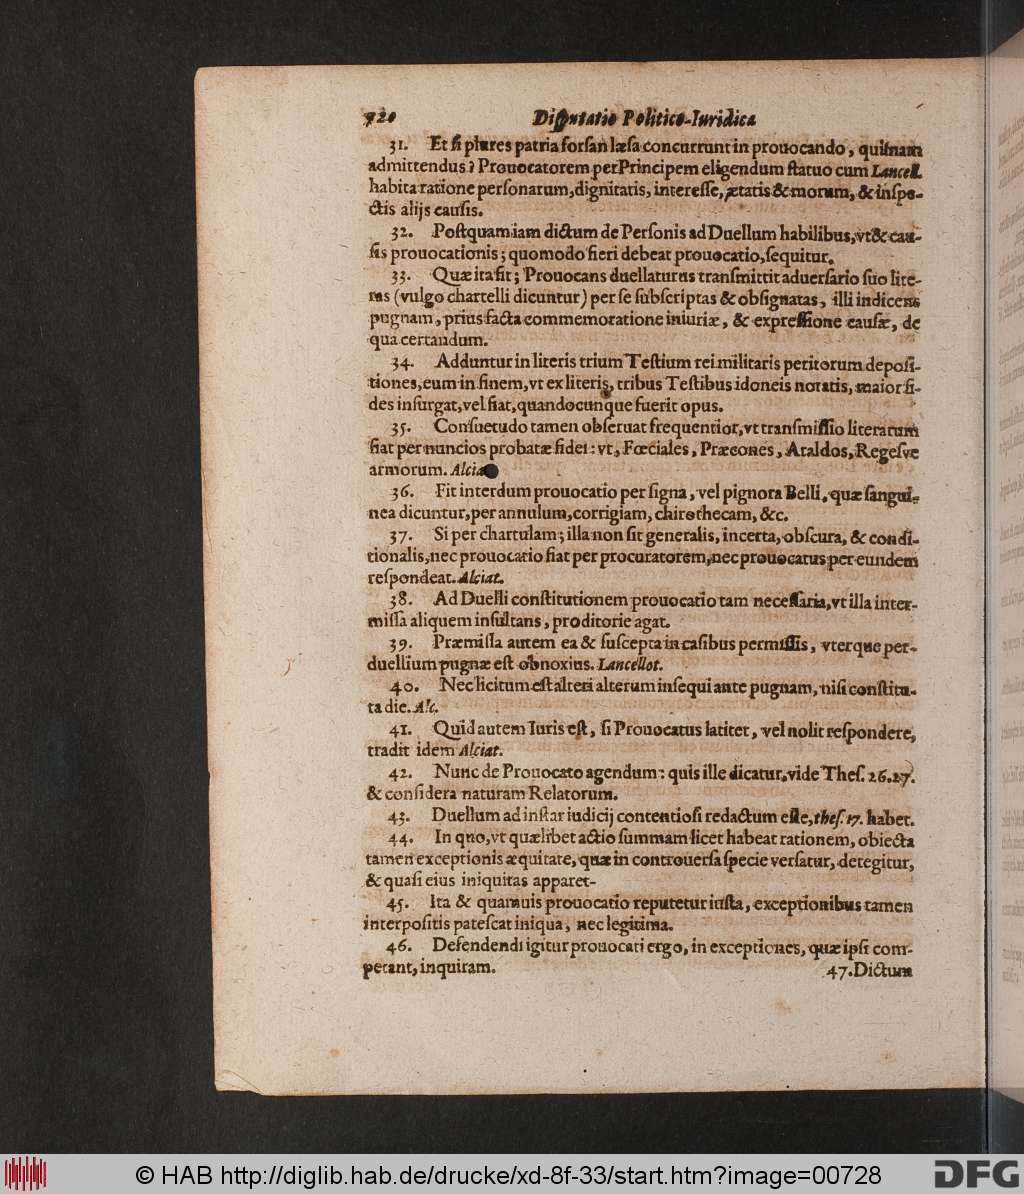 720 Disputatio Politico-Iuridica
31. Et si plures patria forsan læsa concurrunt in prouocando, quisnam
admittendus? Prouocatorem per Principem eligendum statuo cum Lancell.
habita ratione personarum, dignitatis, interesse, ætatis & morum, & inspe-
ctis alijs causis.
32. Postquam iam dictum de Personis ad Duellum habilibus, vt & cau-
sis prouocationis; quomodo fieri debeat prouocatio, sequitur.
33. Quæ ita fit; Prouocans duellaturus transmittit aduersario suo lite-
ras (vulgo chartelli dicuntur) per se subscriptas & obsignatas, illi indicens
pugnam, prius facta commemoratione iniuriæ, & expressione causæ, de
qua certandum.
34. Adduntur in literis trium Testium rei militaris peritorum deposi-
tiones, eum in finem, vt ex literis, tribus Testibus idoneis notatis, maior fi-
des insurgat, vel fiat, quandocunque fuerit opus.
35. Consuetudo tamen obseruat frequentior, vt transmissio literarum
fiat per nuncios probatæ fidei: vt, Fœciales, Præcones, Araldos, Regesve
armorum. Alcia
36. Fit interdum prouocatio per signa, vel pignora Belli, quæ sangui-
nea dicuntur, per annulum, corrigiam, chirothecam, &c.
37. Si per chartulam; illa non sit generalis, incerta, obscura, & condi-
tionalis, nec prouocatio fiat per procuratorem, nec prouocatus per eundem
respondeat. Alciat.
38. Ad Duelli constitutionem prouocatio tam necessaria, vt illa inter-
missa aliquem insultans, proditorie agat.
39. Præmissa autem ea & suscepta in casibus permissis, vterque per-
duellium pugnæ est obnoxius. Lancellot.
40. Nec licitum est alteri alterum insequi ante pugnam, nisi constitu-
ta die. Alc.
41. Quid autem Iuris est, si Prouocatus latitet, vel nolit respondere,
tradit idem Alciat.
42. Nunc de Prouocato agendum: quis ille dicatur, vide Thes. 26. 27.
& considera naturam Relatorum.
43. Duellum ad instar iudicij contentiosi redactum esse, thes. 17. habet.
44. In quo, vt quælibet actio summam licet habeat rationem, obiecta
tamen exceptionis æquitate, quæ in controuersa specie versatur, detegitur,
& quasi eius iniquitas apparet-
45. Ita & quamuis prouocatio reputetur iusta, exceptionibus tamen
interpositis patescat iniqua, nec legitima.
46. Defendendi igitur prouocati ergo, in exceptiones, quæ ipsi com-
petant, inquiram. 47. Dictum
© HAB http://diglib.hab.de/drucke/xd-8f-33/start.htm?image=00728 DFG